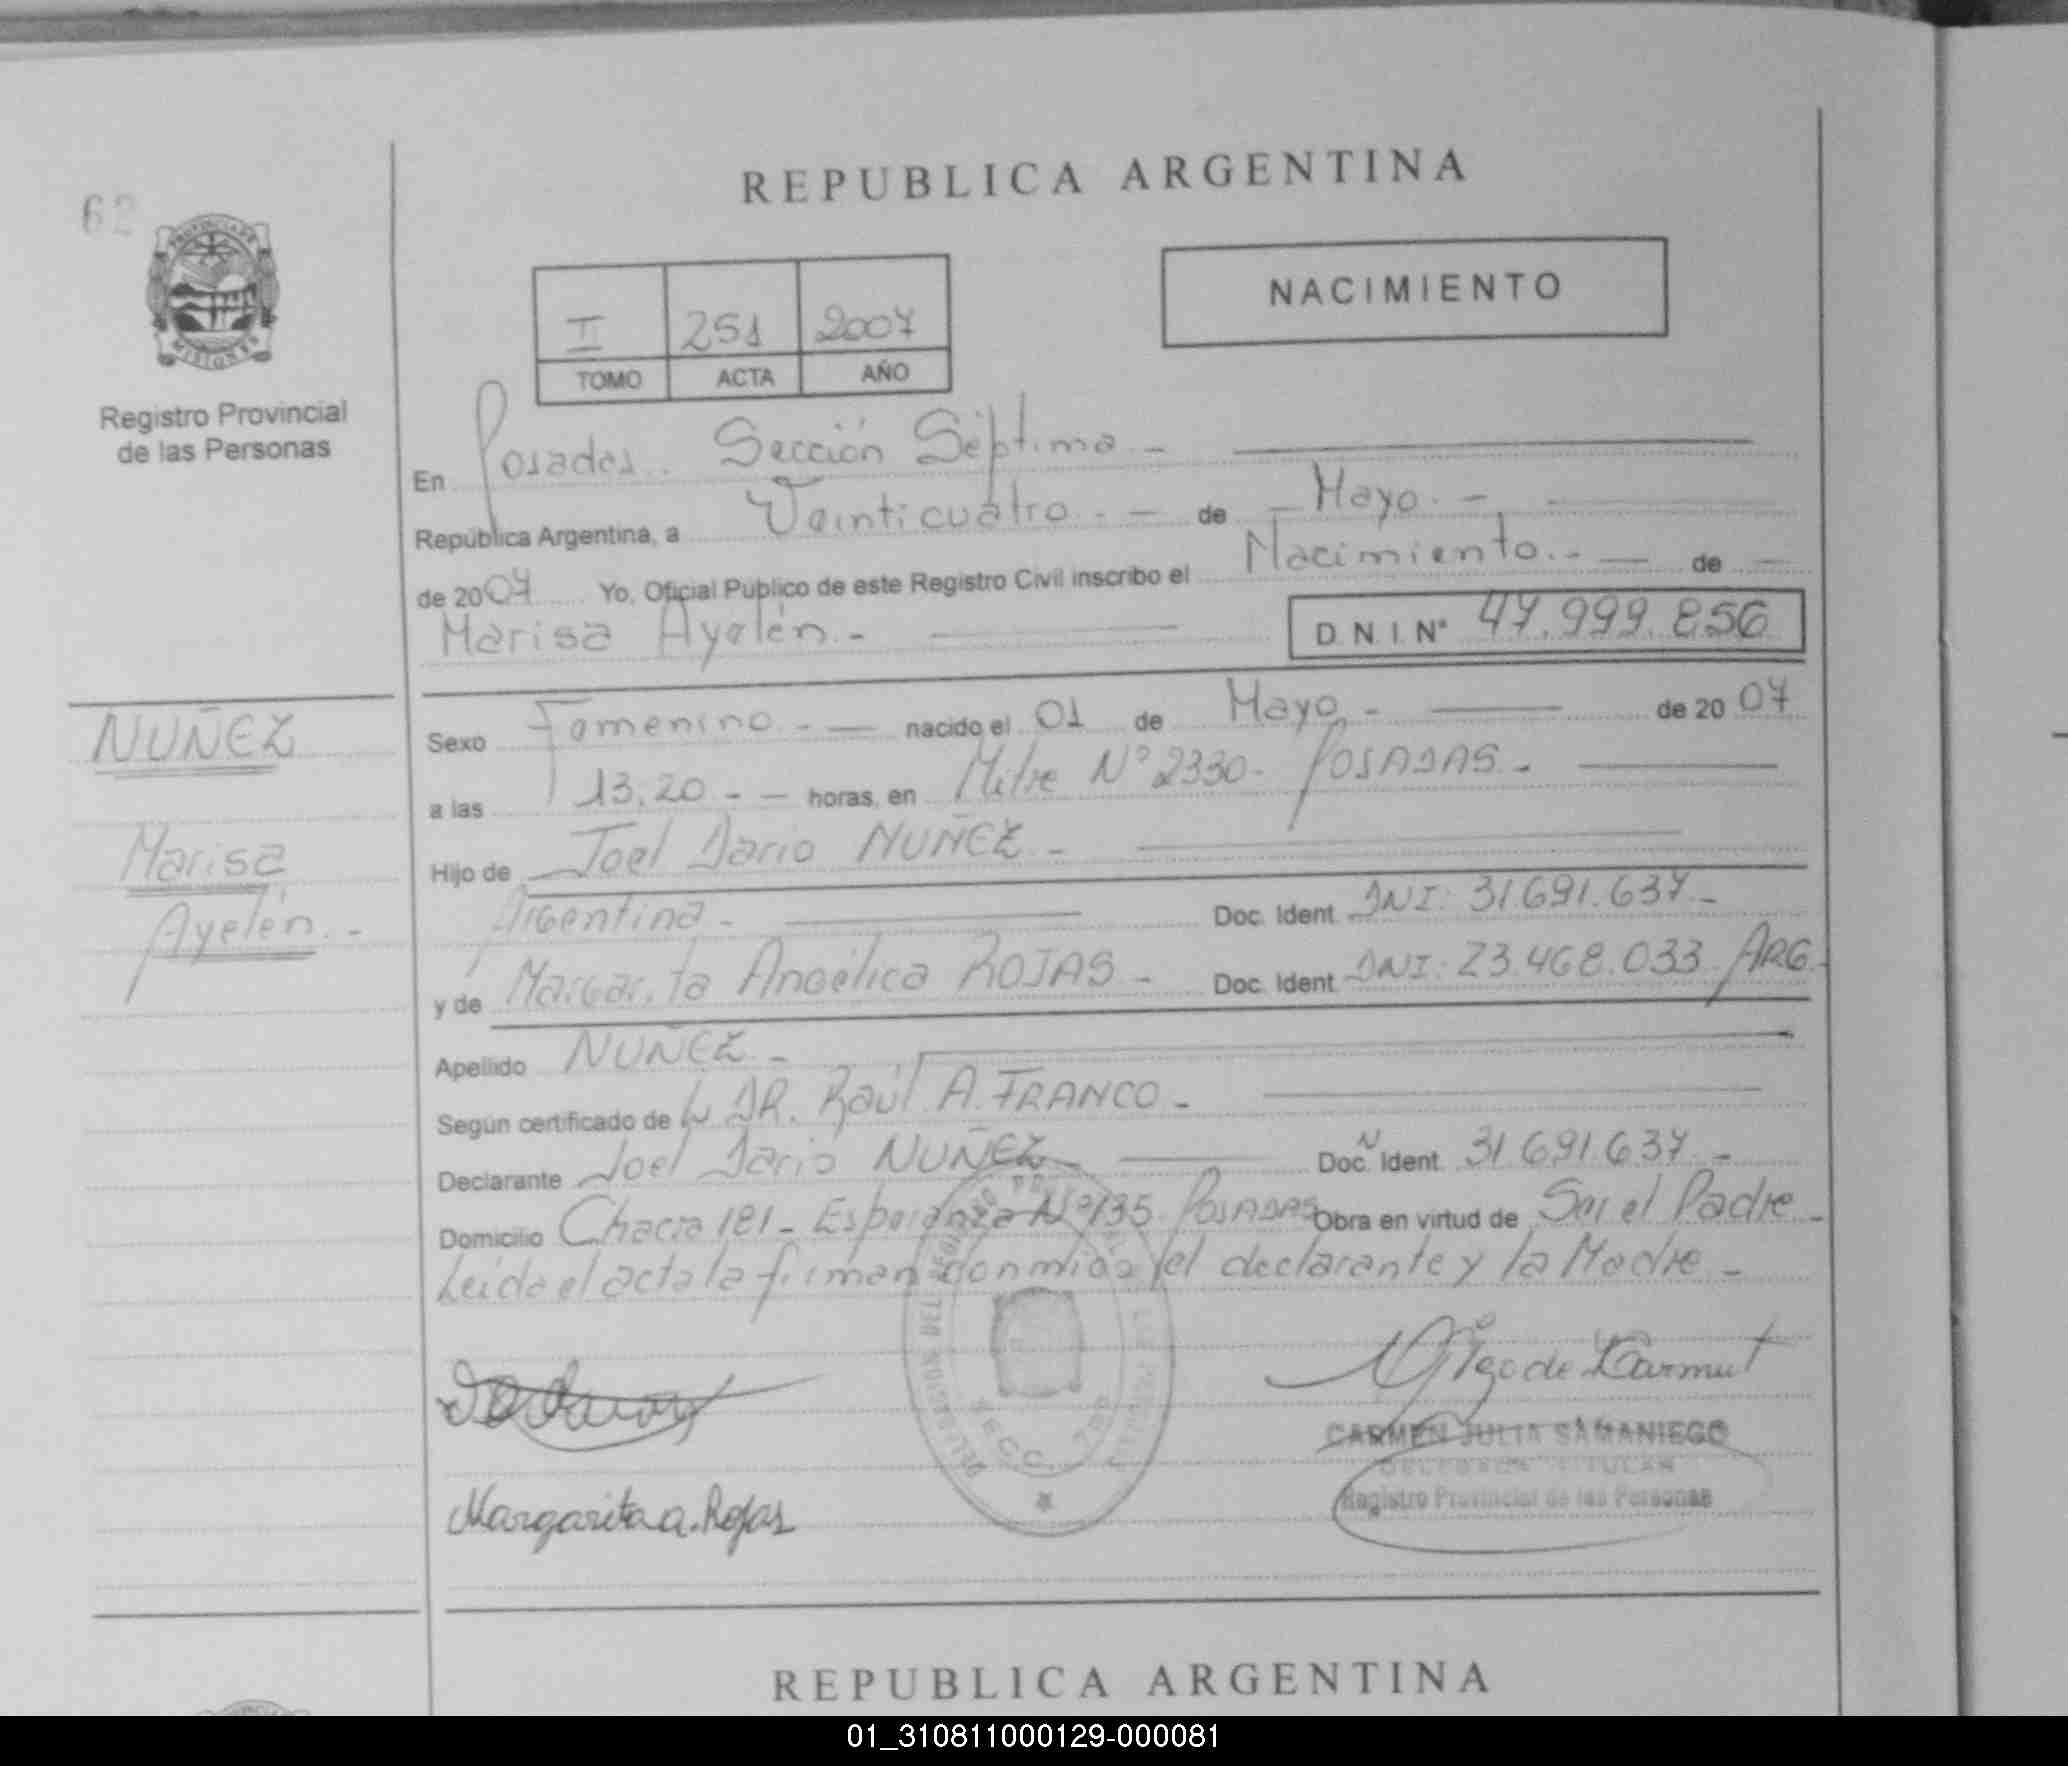 62
REPUBLICA ARGENTINA
PROVINCIA DE
MISIONES
NACIMIENTO
II 251 2007
TOMO ACTA AÑO
Registro Provincial
de las Personas
En Posadas. Sección Séptima.-
República Argentina, a Veinticuatro.- de Mayo.-
de 2007 Yo, Oficial Público de este Registro Civil inscribo el Nacimiento.- de
Marisa Ayelén.- D.N.I.Nº 47.999.856
NUÑEZ
Marisa
Ayelén.-
Sexo Femenino.- nacido el 01 de Mayo.- de 2007
a las 13,20.- horas, en Mitre Nº 2330- POSADAS.-
Hijo de Joel Dario NUÑEZ.-
Argentina.- Doc. Ident. DNI: 31.691.637.-
y de Margarita Angélica ROJAS.- Doc. Ident. DNI: 23.468.033. ARG.-
Apellido NUÑEZ.-
Según certificado de DR. Raúl A. FRANCO.-
Declarante Joel Dario NUÑEZ.- Doc. Ident. 31.691.637.-
Domicilio Chacra 181- Esperanza Nº 135. POSADAS Obra en virtud de Ser el Padre.-
Leida el acta la firman conmigo el declarante y la Madre.-
DELEGACION DEL REGISTRO
SECC. 7ma
Margarita a. Rojas
CARMEN JULIA SAMANIEGO
DELEGADA TITULAR
Registro Provincial de las Personas
REPUBLICA ARGENTINA
01_310811000129-000081